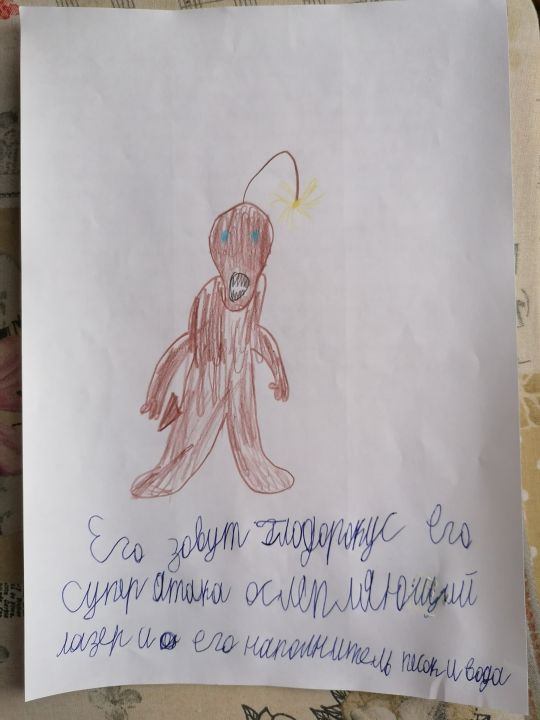 Его зовут Глодорокус Его
супер Атака ослепляющий
лазер и его наполнитель песок и вода